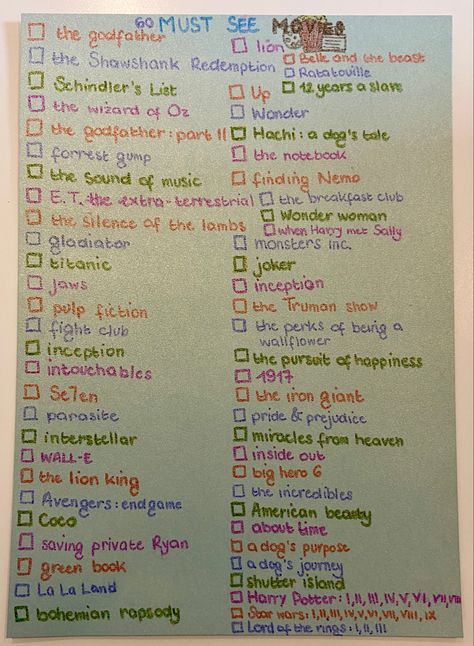 60 MUST SEE MOVIES
the godfather
the Shawshank Redemption
Schindler's List
the wizard of Oz
the godfather: part II
forrest gump
the sound of music
E.T. the extra-terrestrial
the silence of the lambs
gladiator
titanic
jaws
pulp fiction
fight club
inception
intouchables
Se7en
parasite
interstellar
WALL-E
the lion king
Avengers: endgame
Coco
saving private Ryan
green book
La La Land
bohemian rapsody
lion
Belle and the beast
Ratatouille
12 years a slave
Up
Wonder
Hachi: a dog's tale
the notebook
finding Nemo
the breakfast club
Wonder woman
when Harry met Sally
monsters inc.
joker
inception
the Truman show
the perks of being a
wallflower
the pursuit of happiness
1917
the iron giant
pride & prejudice
miracles from heaven
inside out
big hero 6
the incredibles
American beauty
about time
a dog's purpose
a dog's journey
shutter island
Harry Potter: I, II, III, IV, V, VI, VII, VIII
Star wars: I, II, III, IV, V, VI, VII, VIII, IX
Lord of the rings: I, II, III